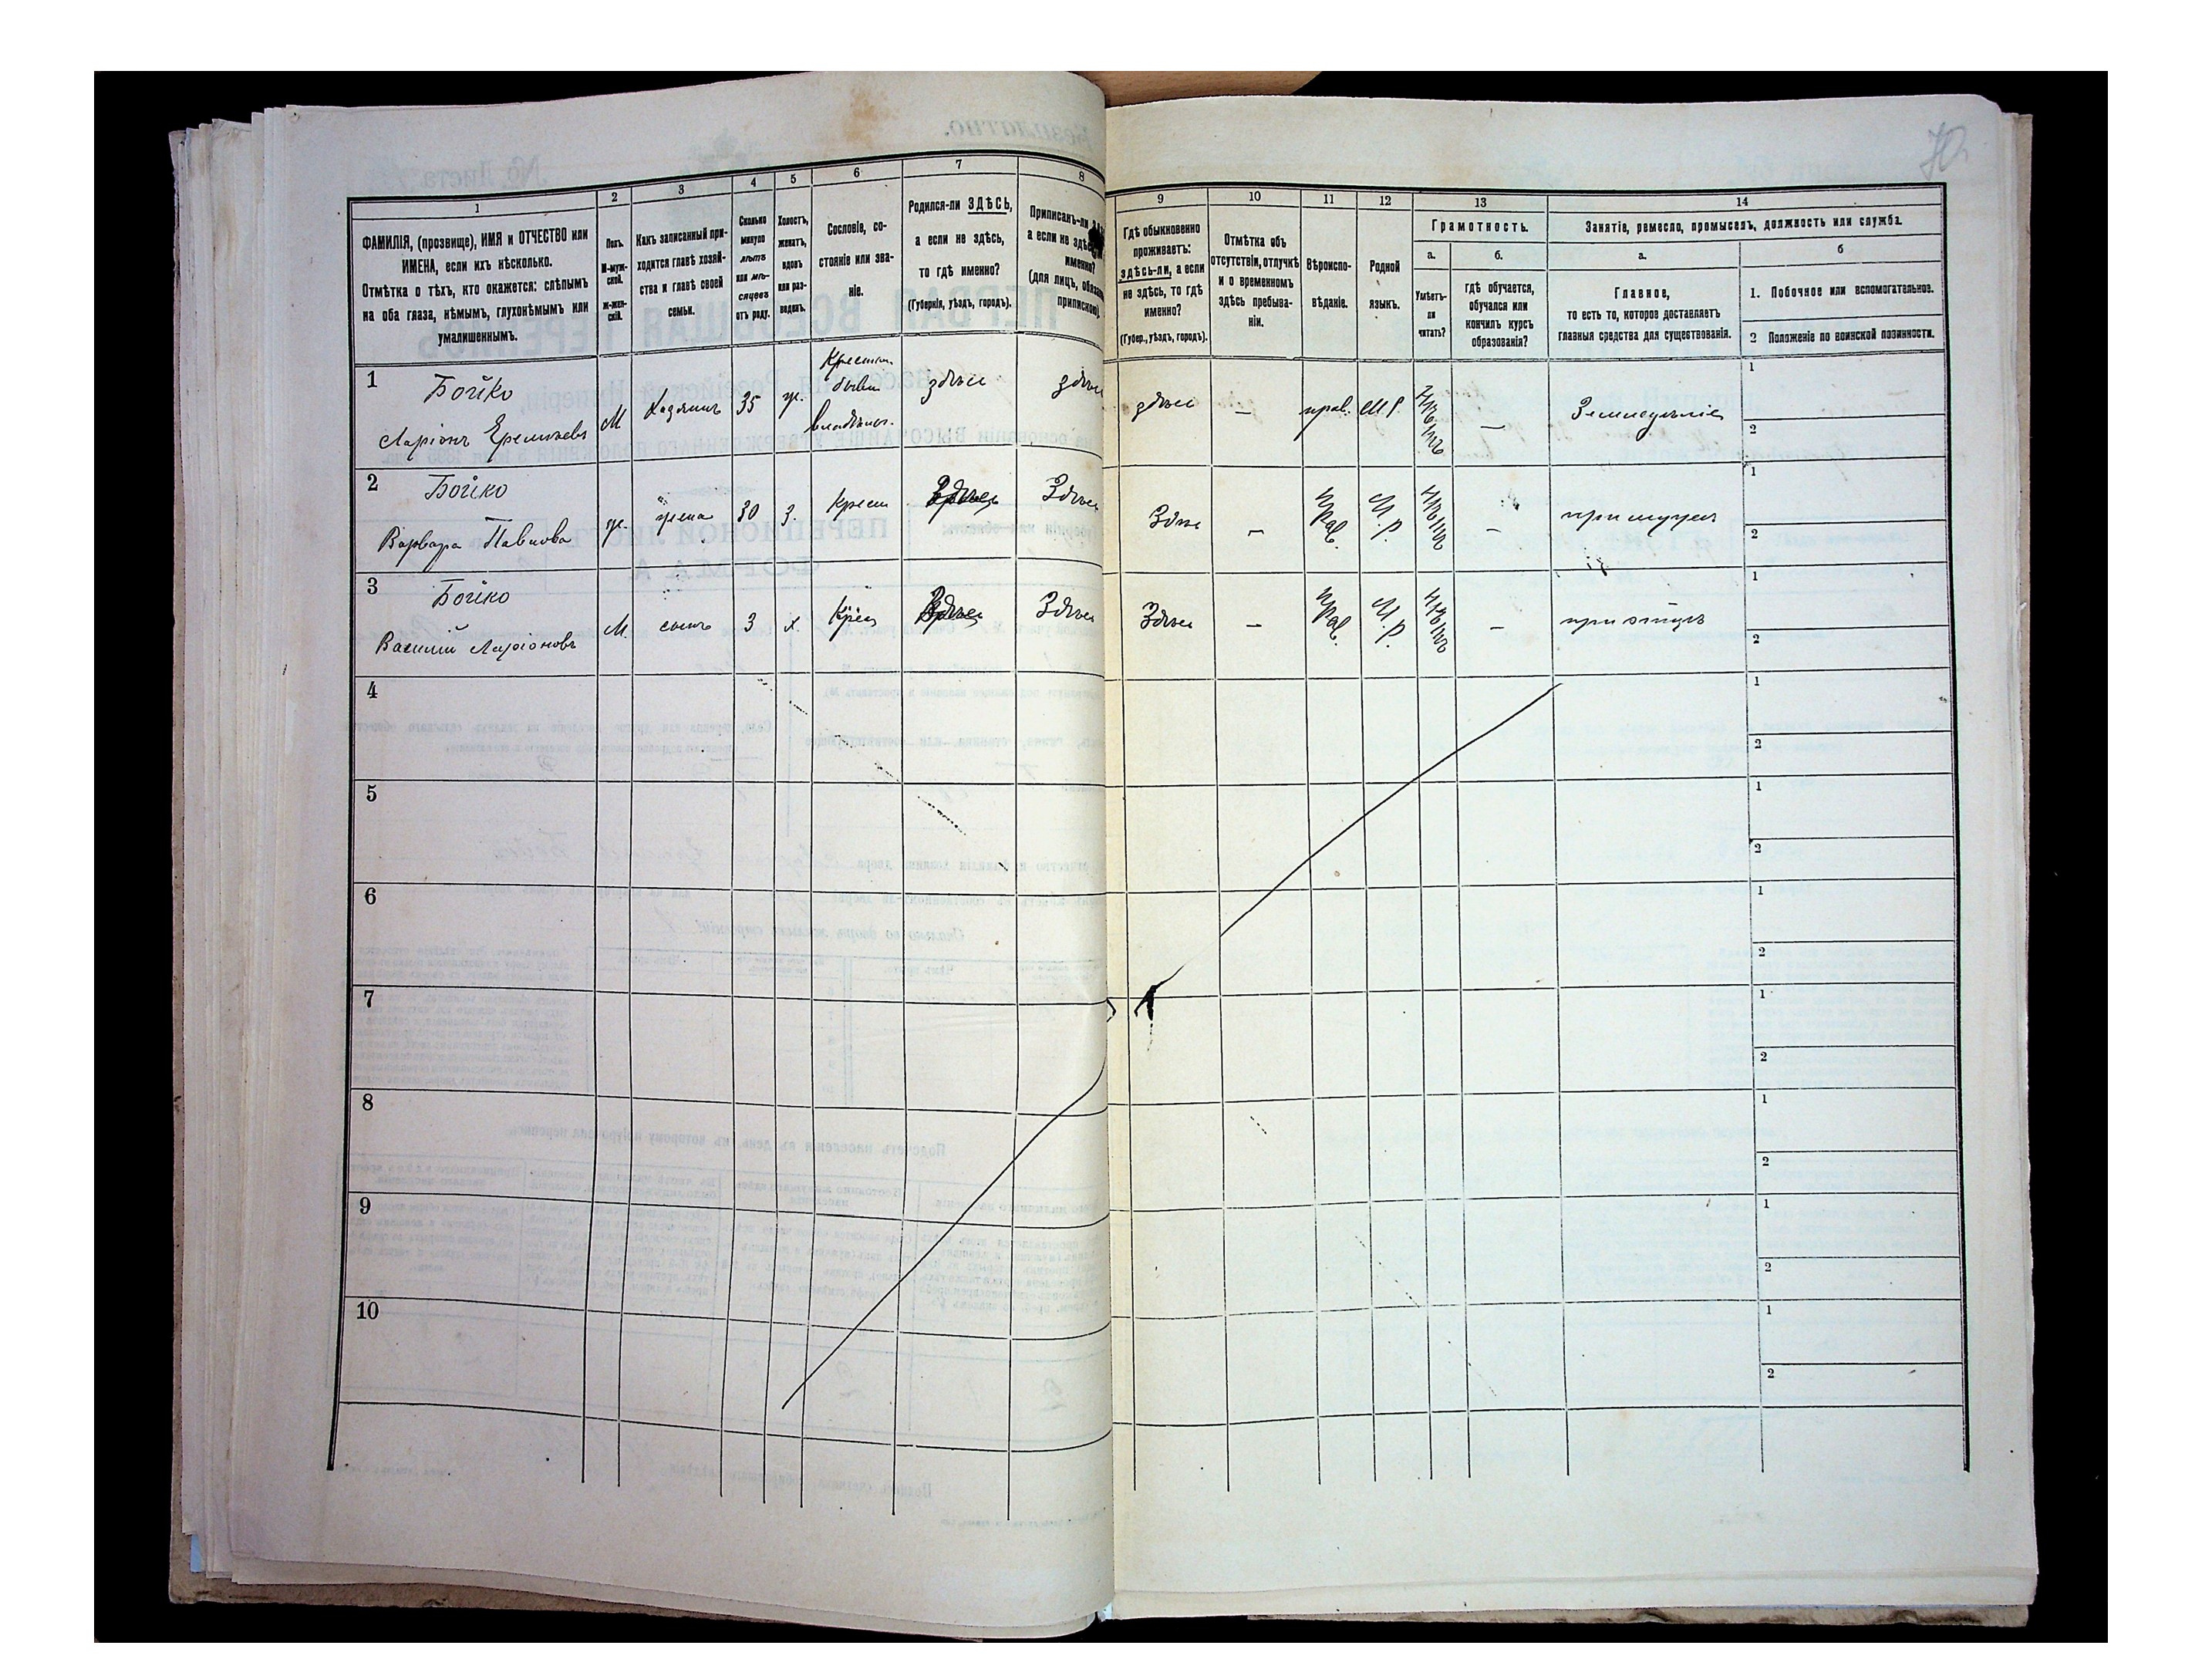 70.
1
ФАМИЛІЯ, (прозвище), ИМЯ и ОТЧЕСТВО или
ИМЕНА, если ихъ нѣсколько.
Отмѣтка о тѣхъ, кто окажется: слѣпымъ
на оба глаза, нѣмымъ, глухонѣмымъ или
умалишеннымъ.
2
Полъ.
М-муж-
ской.
Ж-жен-
скій.
3
Какъ записанный при-
ходится главѣ хозяй-
ства и главѣ своей
семьи.
4
Сколько
минуло
лѣтъ
или мѣ-
сяцевъ
отъ роду.
5
Холостъ,
женатъ,
вдовъ
или раз-
веденъ.
6
Сословіе, со-
стояніе или зва-
ніе.
7
Родился-ли ЗДѢСЬ,
а если не здѣсь,
то гдѣ именно?
(Губернія, уѣздъ, городъ).
8
Приписанъ-ли
а если не здѣсь
именно?
(для лицъ,
припискою)
9
Гдѣ обыкновенно
проживаетъ:
здѣсь-ли, а если
не здѣсь, то гдѣ
именно?
(Губер., уѣздъ, городъ).
10
Отмѣтка объ
отсутствіи, отлучкѣ
и о временномъ
здѣсь пребыва-
ніи.
11
Вѣроиспо-
вѣданіе.
12
Родной
языкъ.
13
Грамотность.
а.
Умѣетъ-
ли
читать?
б.
гдѣ обучается,
обучался или
кончилъ курсъ
образованія?
14
Занятіе, ремесло, промыселъ, должность или служба.
а.
Главное,
то есть то, которое доставляетъ
главныя средства для существованія.
б
1. Побочное или вспомогательное.
2 Положеніе по воинской повинности.
1 Бойко
Ларіонъ Еремѣевъ М Хозяинъ 35 ж. Крестьян. бывш. владѣльч. здѣсь здѣсь здѣсь — прав. М.Р. нѣтъ — Земледѣліе 1
2
2 Бойко
Варвара Павлова ж. жена 30 з. крест Здѣсь Здѣсь Здѣсь — прав. М.Р. нѣтъ — при мужѣ 1
2
3 Бойко
Василий Ларіоновъ М. сынъ 3 х. Крес Здѣсь Здѣсь Здѣсь — прав. М.Р. нѣтъ — при отцѣ 1
2
4 1
2
5 1
2
6 1
2
7 1
2
8 1
2
9 1
2
10 1
2